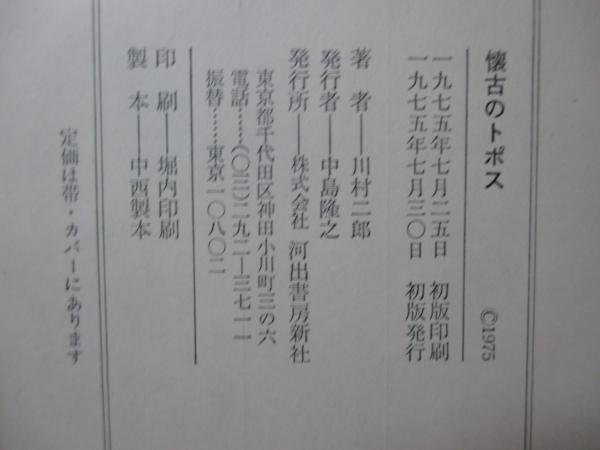 懐古のトポス
©1975
一九七五年七月二五日 初版印刷
一九七五年七月三〇日 初版発行
著者──川村二郎
発行者──中島隆之
発行所──株式会社 河出書房新社
東京都千代田区神田小川町三の六
電話……(〇三)二九二―三七一一
振替……東京一〇八〇二
印刷──堀内印刷
製本──中西製本
定価は帯・カバーにあります